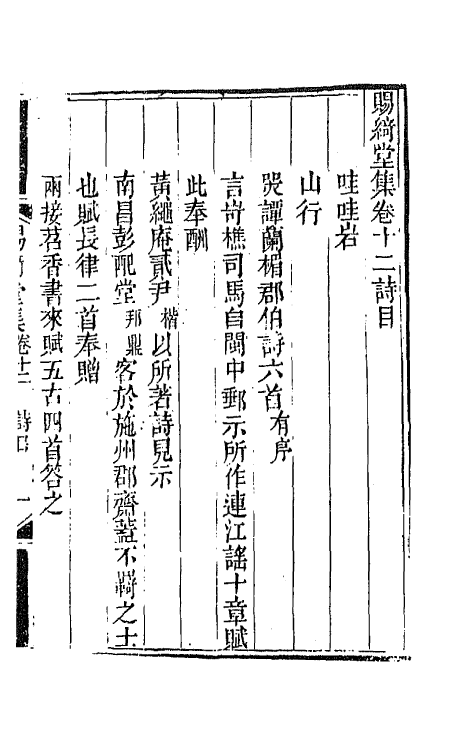 賜綺堂集卷十二詩目
哇哇岩
山行
哭譚蘭楣郡伯詩六首有序
言岢樵司馬自閩中郵示所作連江謠十章賦
此奉酬
黃繩庵貳尹楷以所著詩見示
南昌彭配堂邦鼎客於施州郡齋蓋不羇之士
也賦長律二首奉贈
兩接茗香書來賦五古四首答之
賜綺堂集卷十二 詩目 一